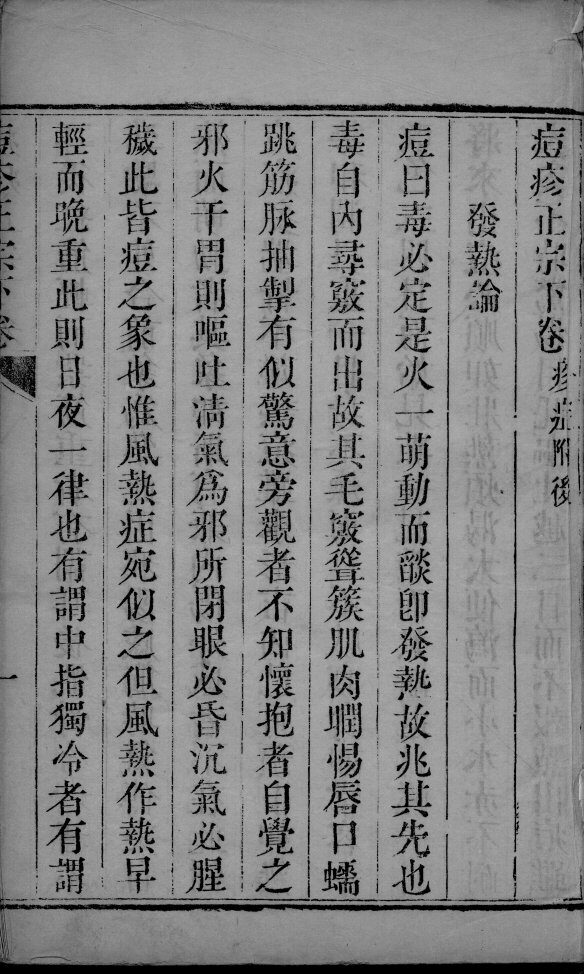 痘疹正宗下卷 疹症附後
發熱論
痘曰毒必定是火一萌動而燄卽發熱故兆其先也
毒自內尋竅而出故其毛竅聳簇肌肉瞤惕唇口蠕
跳筋脉抽掣有似驚意旁觀者不知懷抱者自覺之
邪火干胃則嘔吐清氣爲邪所閉眼必昏沉氣必腥
穢此皆痘之象也惟風熱症宛似之但風熱作熱早
輕而晚重此則日夜一律也有謂中指獨冷者有謂
痘疹正宗下卷
一